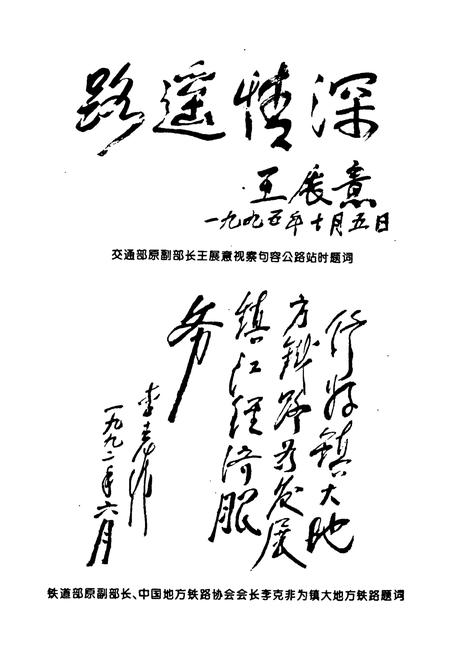 路遥情深
王展意
一九九五年十月五日
交通部原副部长王展意视察句容公路站时题词
修好镇大地
方铁路为发展
镇江经济服
务
李克非
一九九二年六月
铁道部原副部长、中国地方铁路协会会长李克非为镇大地方铁路题词